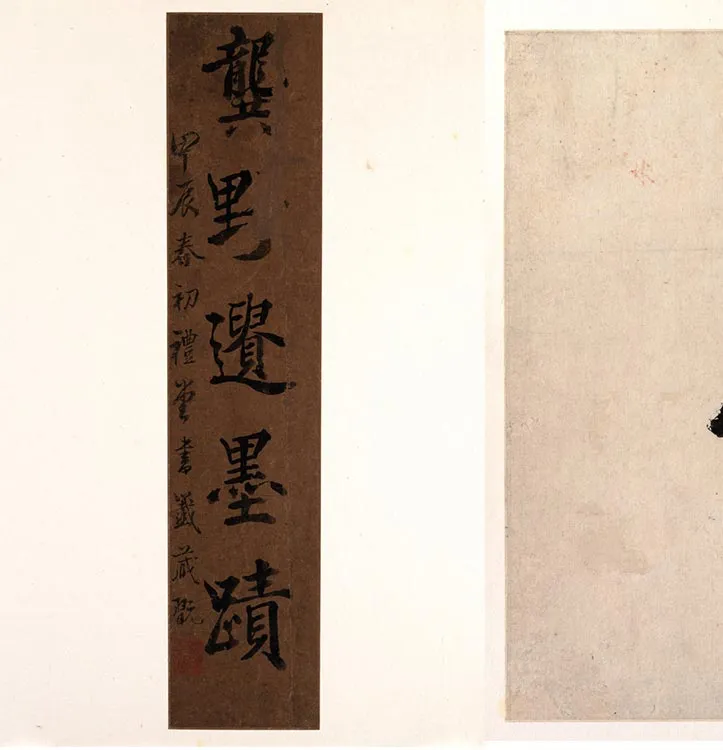 龔野遺墨蹟
甲辰春初禮堂書籤藏翫